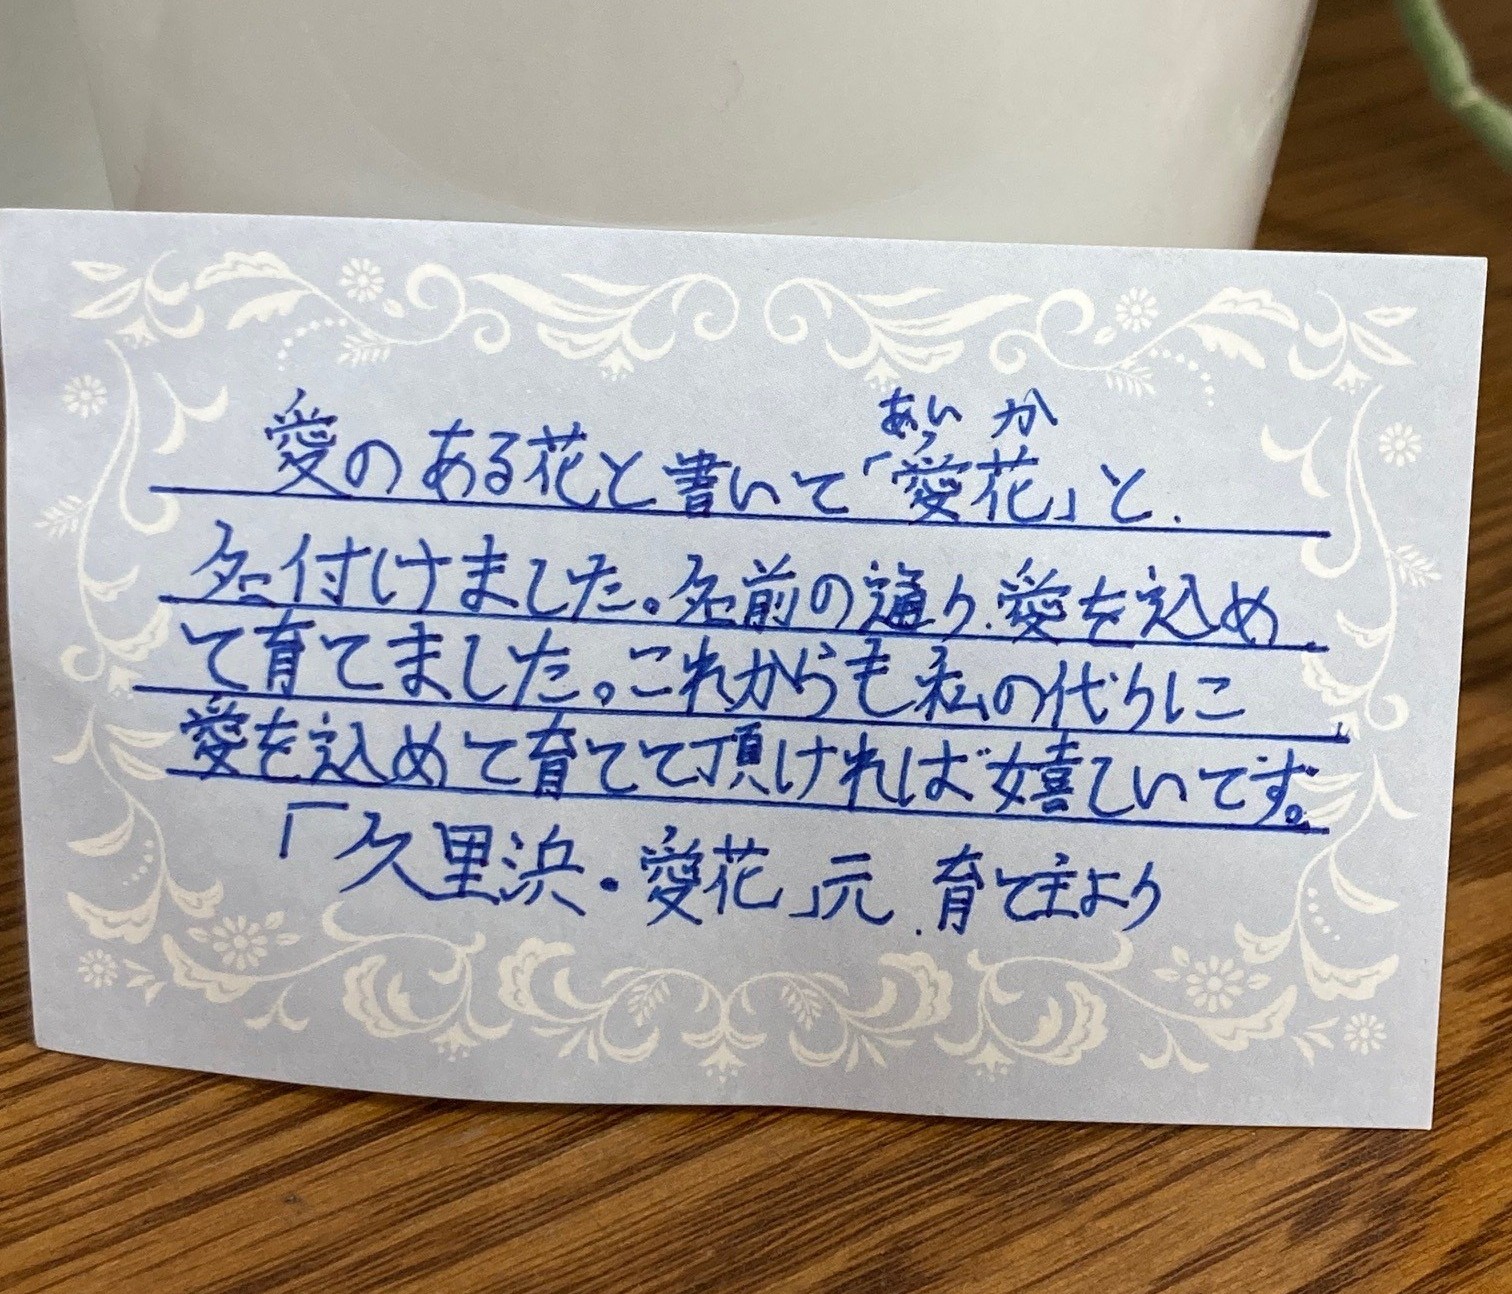 愛のある花と書いて「愛花」と、
あい か
名付けました。名前の通り、愛を込め
て育てました。これからも私の代りに
愛を込めて育てて頂ければ嬉しいです。
「久里浜・愛花」元、育て主より